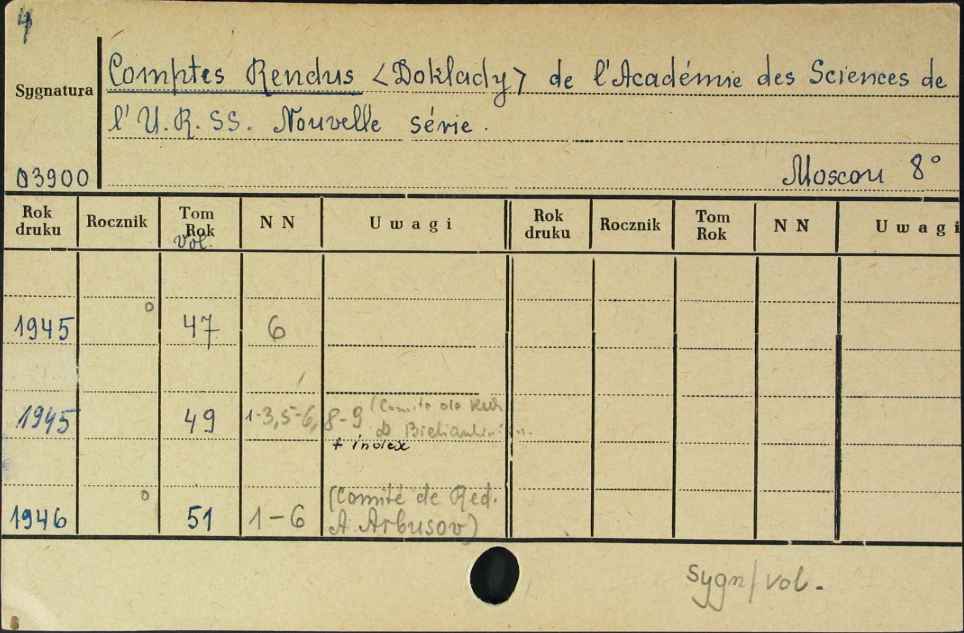 4
Sygnatura
Comptes Rendus <Doklady> de l'Académie des Sciences de
l'U.R.SS. Nouvelle série.
03900
Moscou 8°
Rok druku Rocznik Tom Rok Vol. N N Uwagi Rok druku Rocznik Tom Rok N N Uwagi
1945 o 47 6
1945 49 1-3,5-6, 8-9 (Comité de
+ index
1946 o 51 1-6 (Comité de Red.
A. Arbusov)
sygn/vol.